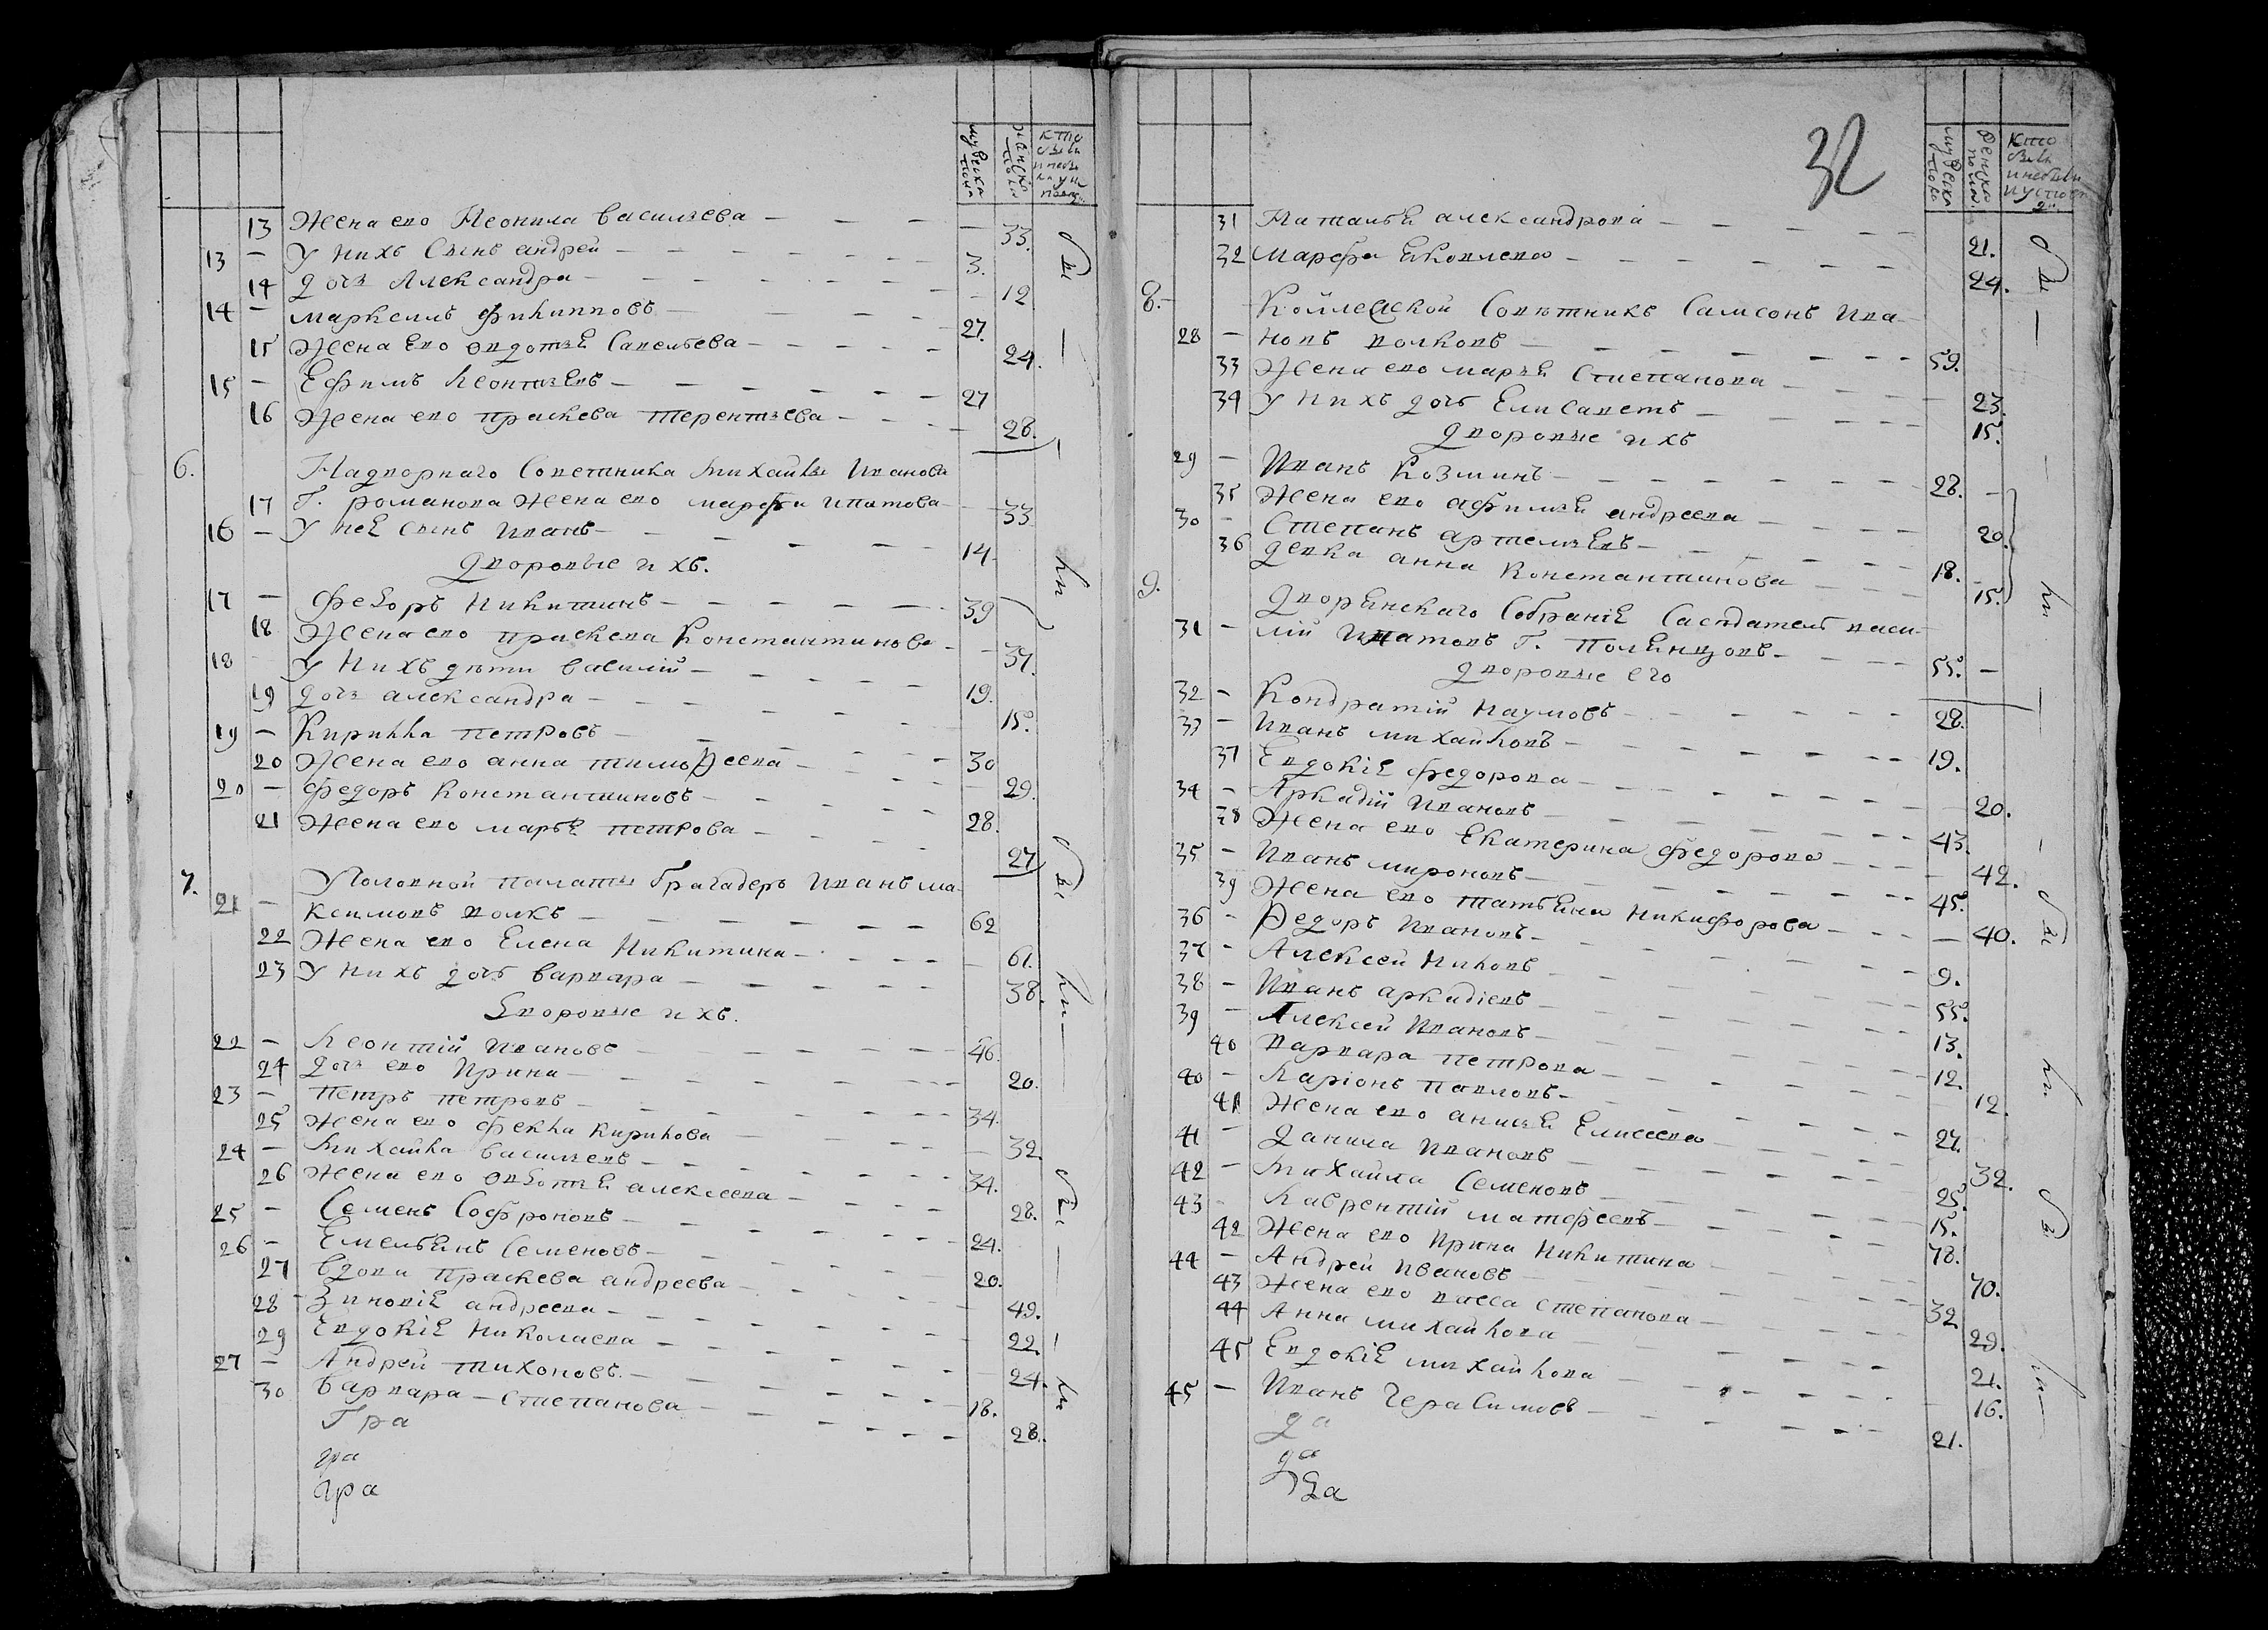 мужеска пола
женска пола
кто
13 Жена ево Неонила васильева — 33.
13 — У нихъ Сынъ андрей — 3.
14 дочь Александра — 12
14 — маркеллъ филипповъ — 27.
15 Жена Ево овдотья Савельева — 24.
15 — Ефимъ леонтьевъ — 27
16 Жена ево прасковя терентьева — 28.
6. Надворнаго Советника михайлы Иванова
17 Г. романова Жена ево марфа ипатова — 33
16 — У неё сынъ иванъ — 14.
дворовые ихъ.
17 — Федоръ Никитинъ — 39
18 Жена ево праскева Константинова — 37.
18 У Нихъ дети василий — 19.
19 дочь александра — 15.
19 — Кирилла петровъ — 30
20 Жена ево анна тимоѳеева — 29.
20 — Федоръ Константиновъ — 28.
21 Жена ево марья петрова — 27
7. Уголовной палаты брагадеръ иванъ ма-
21 — ксимовъ волкъ — 62
22 Жена ево Елена Никитина — 61.
23 У нихъ дочь варвара — 38.
дворовые ихъ.
22 — Леонтий Ивановъ — 46.
24 дочь ево Ирина — 20.
23 — петръ петровъ — 34.
25 Жена ево фекла кирилова — 32.
24 — михайла васильевъ — 34.
26 Жена ево овдотья алексеева — 28.
25 — Семенъ Софроновъ — 24.
26 — Емельянъ Семеновъ — 20.
27 вдова праскева андреева — 49.
28 Зиновия андреева — 22.
29 Евдокия Николаева — 24.
27 — Андрей тихоновъ — 18.
30 варвара степанова — 28.
Гра
гра
гра
32
мужеска пола
женска пола
кто
31 Наталья александрова — 21.
32 Марфа яковлева — 24.
8. Коллежской Советникъ Самсонъ Ива-
28 — новъ волковъ — 59.
33 Жена ево марья Степанова — 23.
34 У нихъ дочь Елисаветъ — 15.
дворовые ихъ
29 — Иванъ Козминъ — 28.
35 Жена ево афимья андреева — 20.
30 — Степанъ артемьевъ — 18.
36 девка анна Константинова — 15.
9. дворянскаго Собрания Саседатель васи-
31 — лий ипатовъ Г. Полянцовъ — 55.
дворовые его
32 — Кондратий Наумовъ — 28.
33 — Иванъ михайловъ — 19.
37 Евдокия федорова — 20.
34 — Аркадий Ивановъ — 43.
38 Жена ево Екатерина федорова — 42.
35 — Иванъ мироновъ — 45.
39 Жена ево татьяна Никифорова — 40.
36 — Ѳедоръ Ивановъ — 9.
37 — Алексей Ниловъ — 55.
38 — Иванъ аркадиевъ — 13.
39 — Алексей Ивановъ — 12.
40 варвара петрова — 12.
40 — Ларионъ павловъ — 27.
41 Жена ево анисья Елисеева — 32.
41 — данила Ивановъ — 25.
42 — михайла Семеновъ — 15.
43 — Лаврентий матфеевъ — 78.
42 Жена ево Ирина Никитина — 70.
44 — Андрей Ивановъ — 32
43 Жена ево васса степанова — 29.
44 Анна михайлова — 21.
45 Евдокия михайлова — 16.
45 — Иванъ Герасимовъ — 21.
да
да
да